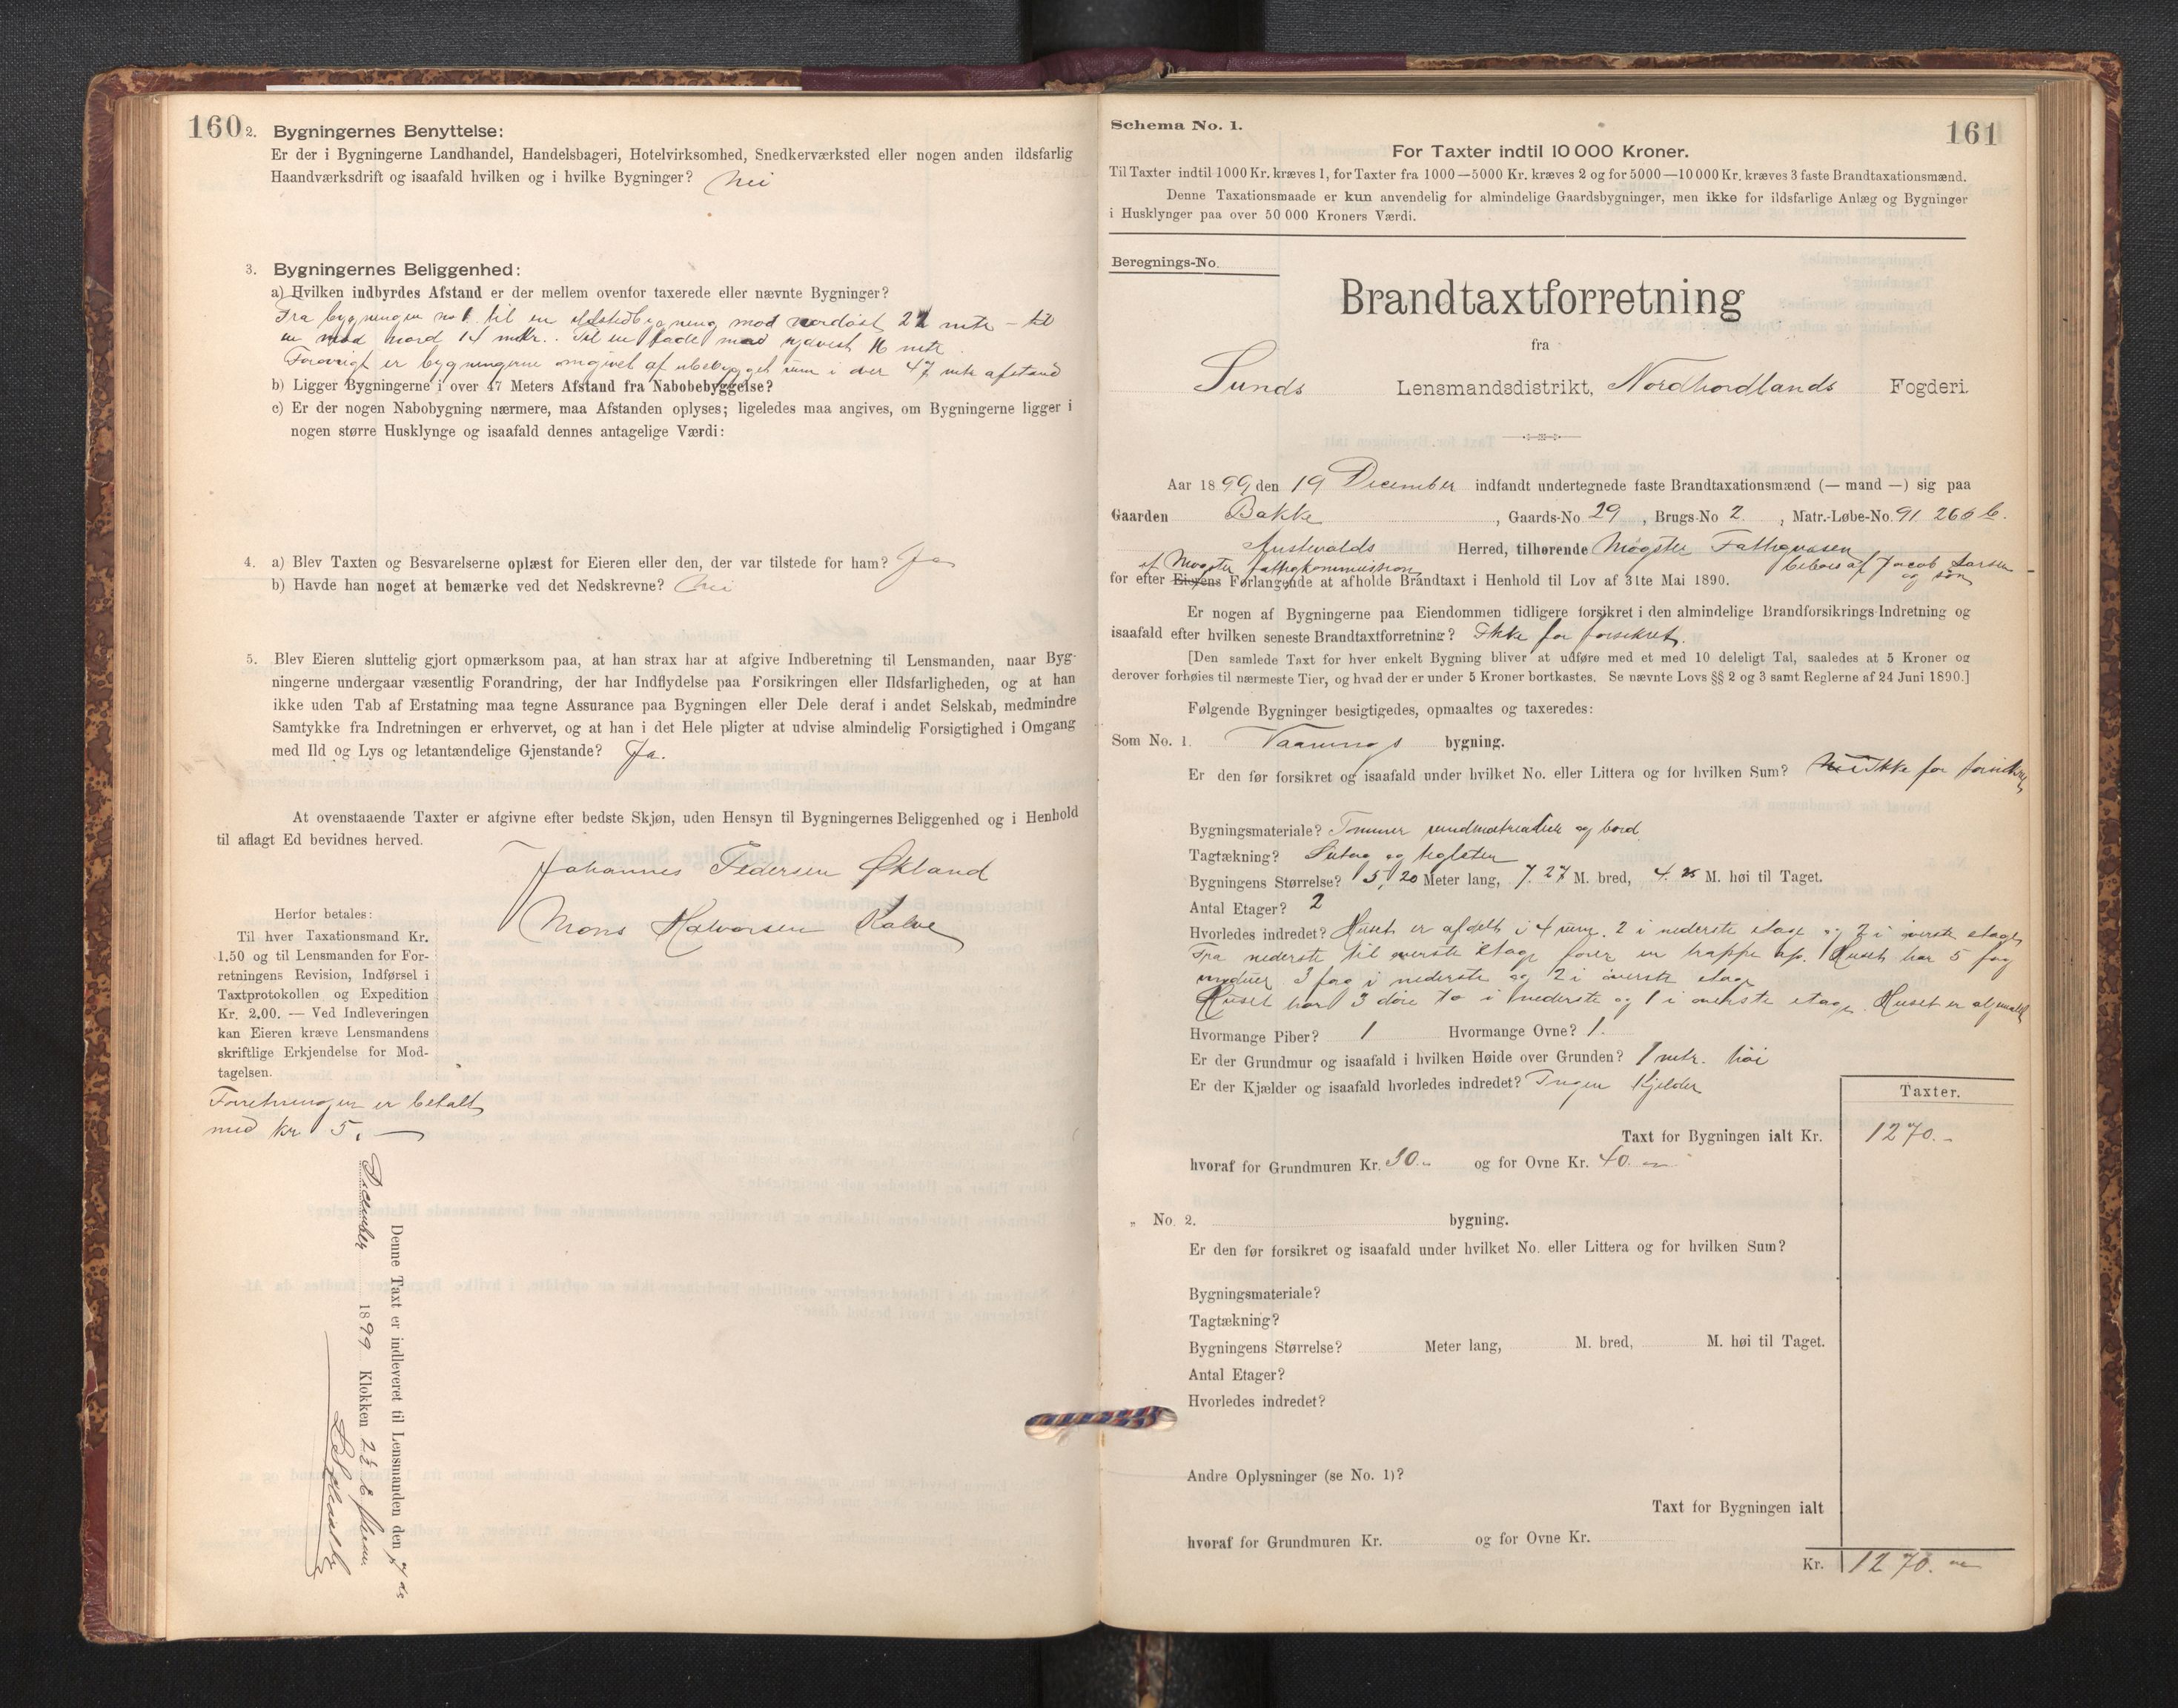 160
2. Bygningernes Benyttelse:
Er der i Bygningerne Landhandel, Handelsbageri, Hotelvirksomhed, Snedkerværksted eller nogen anden ildsfarlig
Haandværksdrift og isaafald hvilken og i hvilke Bygninger? Nei
3. Bygningernes Beliggenhed:
a) Hvilken indbyrdes Afstand er der mellem ovenfor taxerede eller nævnte Bygninger?
Fra bygningen no 1 til en ildstedbygning mod nordöst 21 mtr – til
en mod nord 14 mtr. Til en lade mod sydvest 16 mtr
Forøvrigt er bygningerne omgivet af ubebygget rum i over 47 mtr afstand
b) Ligger Bygningerne i over 47 Meters Afstand fra Nabobebyggelse?
c) Er der nogen Nabobygning nærmere, maa Afstanden oplyses; ligeledes maa angives, om Bygningerne ligger i
nogen større Husklynge og isaafald dennes antagelige Værdi:
4. a) Blev Taxten og Besvarelserne oplæst for Eieren eller den, der var tilstede for ham? Ja
b) Havde han noget at bemærke ved det Nedskrevne? Nei
5. Blev Eieren sluttelig gjort opmærksom paa, at han strax har at afgive Indberetning til Lensmanden, naar Byg-
ningerne undergaar væsentlig Forandring, der har Indflydelse paa Forsikringen eller Ildsfarligheden, og at han
ikke uden Tab af Erstatning maa tegne Assurance paa Bygningen eller Dele deraf i andet Selskab, medmindre
Samtykke fra Indretningen er erhvervet, og at han i det Hele pligter at udvise almindelig Forsigtighed i Omgang
med Ild og Lys og letantændelige Gjenstande? Ja.
At ovenstaaende Taxter er afgivne efter bedste Skjøn, uden Hensyn til Bygningernes Beliggenhed og i Henhold
til aflagt Ed bevidnes herved.
Johannes Pedersen Økland
Mons Halvorsen Kalve
Herfor betales:
Til hver Taxationsmand Kr.
1.50 og til Lensmanden for For-
retningens Revision, Indførsel i
Taxtprotokollen og Expedition
Kr. 2.00. — Ved Indleveringen
kan Eieren kræve Lensmandens
skriftlige Erkjendelse for Mod-
tagelsen.
Forretningen er betalt
med kr 5. —
Denne Taxt er indleveret til Lensmanden den
December 1899 Klokken 2½
161
Schema No. 1.
For Taxter indtil 10 000 Kroner.
Til Taxter indtil 1000 Kr. kræves 1, for Taxter fra 1000—5000 Kr. kræves 2 og for 5000—10 000 Kr. kræves 3 faste Brandtaxationsmænd.
Denne Taxationsmaade er kun anvendelig for almindelige Gaardsbygninger, men ikke for ildsfarlige Anlæg og Bygninger
i Husklynger paa over 50 000 Kroners Værdi.
Beregnings-No.
Brandtaxtforretning
fra
Sunds Lensmandsdistrikt, Nordhordlands Fogderi.
Aar 1899, den 19 December indfandt undertegnede faste Brandtaxationsmænd (— mand —) sig paa
Gaarden Bakke, Gaards-No 29, Brugs-No 2, Matr.-Løbe-No. 91 266 b.
Austevolds Herred, tilhørende Møgster Fattigvæsen
af Møgster fattigkommission beboes af Jacob Larsen
og søn
for efter Eierens Forlangende at afholde Brandtaxt i Henhold til Lov af 31te Mai 1890.
Er nogen af Bygningerne paa Eiendommen tidligere forsikret i den almindelige Brandforsikrings-Indretning og
isaafald efter hvilken seneste Brandtaxtforretning? Ikke før forsikret.
[Den samlede Taxt for hver enkelt Bygning bliver at udføre med et med 10 deleligt Tal, saaledes at 5 Kroner og
derover forhøies til nærmeste Tier, og hvad der er under 5 Kroner bortkastes. Se nævnte Lovs §§ 2 og 3 samt Reglerne af 24 Juni 1890.]
Følgende Bygninger besigtigedes, opmaaltes og taxeredes:
Som No. 1. Vaanings bygning.
Er den før forsikret og isaafald under hvilket No. eller Littera og for hvilken Sum? Nei Ikke før forsikret
Bygningsmateriale? Tømmer og bord
Tagtækning? og teglsten
Bygningens Størrelse? 5,20 Meter lang, 7.27 M. bred, 4.25 M. høi til Taget.
Antal Etager? 2
Hvorledes indredet? Huset er afdelt i 4 rum. 2 i nederste etage og 2 i øverste etage
Fra nederste til øverste etage fører en trappe op. Huset har 5 fag
vinduer 3 fag i nederste og 2 i øverste etage
Huset har 3 døre to i nederste og 1 i øverste etage. Huset er
Hvormange Piber? 1 Hvormange Ovne? 1.
Er der Grundmur og isaafald i hvilken Høide over Grunden? 1 mtr. høi
Er der Kjælder og isaafald hvorledes indredet? Ingen Kjelder
Taxter.
Taxt for Bygningen ialt Kr. 1270.-
hvoraf for Grundmuren Kr. 30.- og for Ovne Kr. 40.
„ No. 2. bygning.
Er den før forsikret og isaafald under hvilket No. eller Littera og for hvilken Sum?
Bygningsmateriale?
Tagtækning?
Bygningens Størrelse? Meter lang, M. bred, M. høi til Taget.
Antal Etager?
Hvorledes indredet?
Andre Oplysninger (se No. 1)?
Taxt for Bygningen ialt
hvoraf for Grundmuren Kr. og for Ovne Kr.
Kr. 1270.